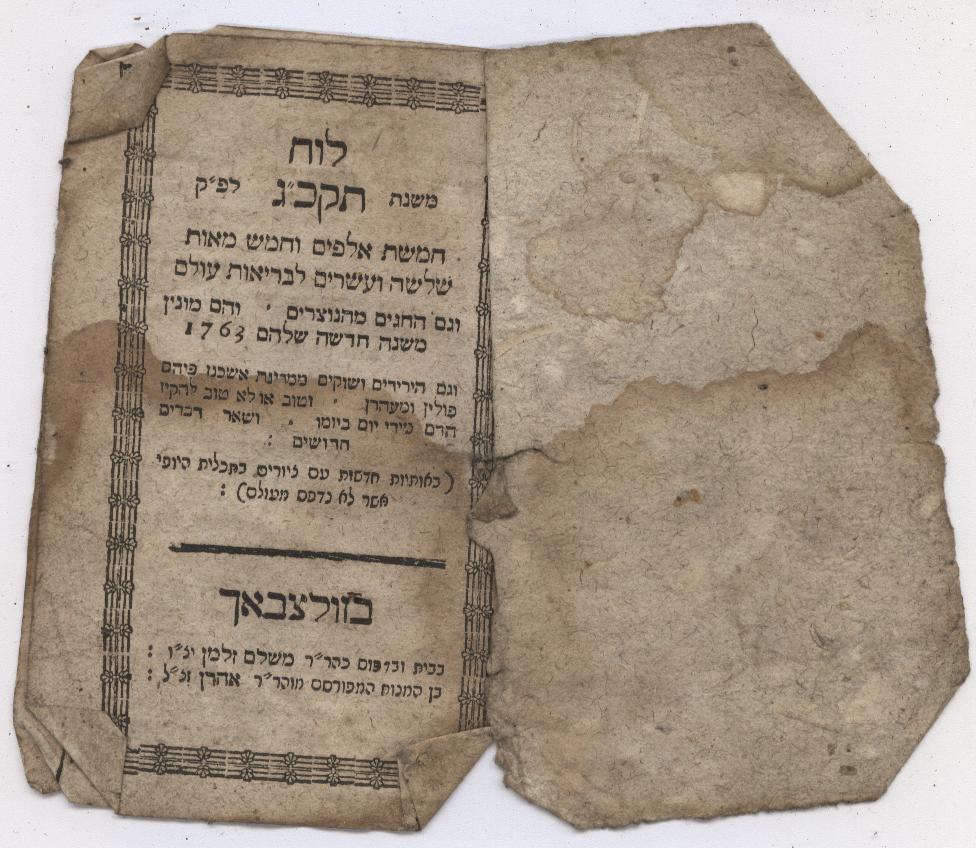 לוח
משנת תקכ״ג לפ״ק
חמשת אלפים וחמש מאות
שלשה ועשרים לבריאות עולם
וגם החגים מהנוצרים י והם מונין
משנה חדשה שלהם 1763
וגם הירידים ושוקים ממדינת אשכנז פיהם
פולין ומעהרן י וטוב או לא טוב להקיז
הדם מידי יום ביומו י ושאר דברים
חדושים :
(באותיות חדשות עם ציורים בתכלית היופי
אשר לא נדפס מעולם) :
בזולצבאך
בבית ובדפוס כהר״ר משלם זלמן יצ״ו :
בן המנוח המפורסם מוהר״ר אהרן זצ״ל :